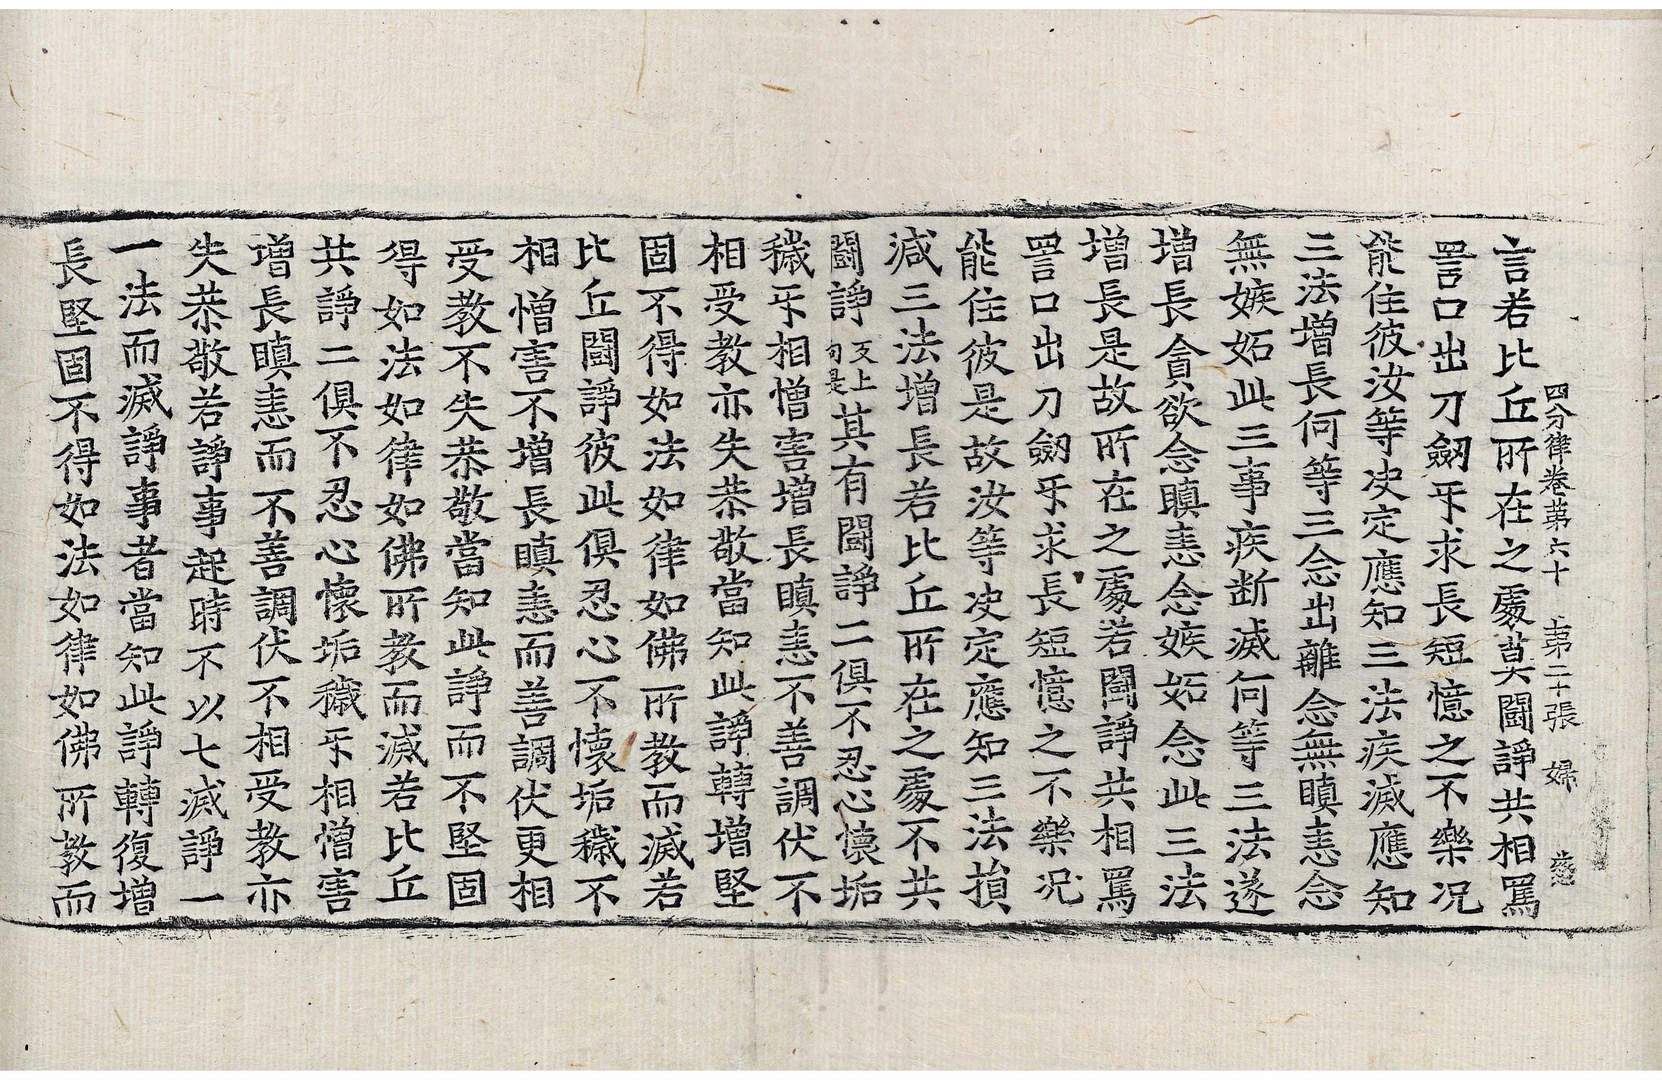 四分律卷苐六十 苐二十張 婦
言若比丘所在之處莫鬪諍共相罵
詈口出刀劒乎求長短憶之不樂况
能住彼汝等决定應知三法疾滅應知
三法增長何等三念出離念無瞋恚念
無嫉妬此三事疾断滅何等三法遂
增長貪欲念瞋恚念嫉妬念此三法
增長是故所在之處若鬪諍共相罵
詈口出刀劒乎求長短憶之不樂况
能住彼是故汝等决定應知三法損
减三法增長若比丘所在之處不共
鬪諍反上句是其有鬪諍二俱不忍心懷垢
穢乎相憎害增長瞋恚不善調伏不
相受教亦失恭敬當知此諍轉增堅
固不得如法如律如佛所教而滅若
比丘鬪諍彼此俱忍心不懷垢穢不
相憎害不增長瞋恚而善調伏更相
受教不失恭敬當知此諍而不堅固
得如法如律如佛所教而滅若比丘
共諍二俱不忍心懷垢穢乎相憎害
增長瞋恚而不善調伏不相受教亦
失恭敬若諍事起時不以七滅諍一
一法而滅諍事者當知此諍轉復增
長堅固不得如法如律如佛所教而